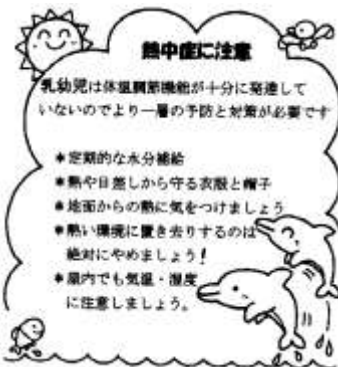 熱中症に注意
乳幼児は体温調節機能が十分に発達して
いないのでより一層の予防と対策が必要です
*定期的な水分補給
*熱や日差しから守る衣服と帽子
*地面からの熱に気をつけましょう
*熱い環境に置き去りするのは
絶対にやめましょう!
*屋内でも気温・湿度
に注意しましょう。